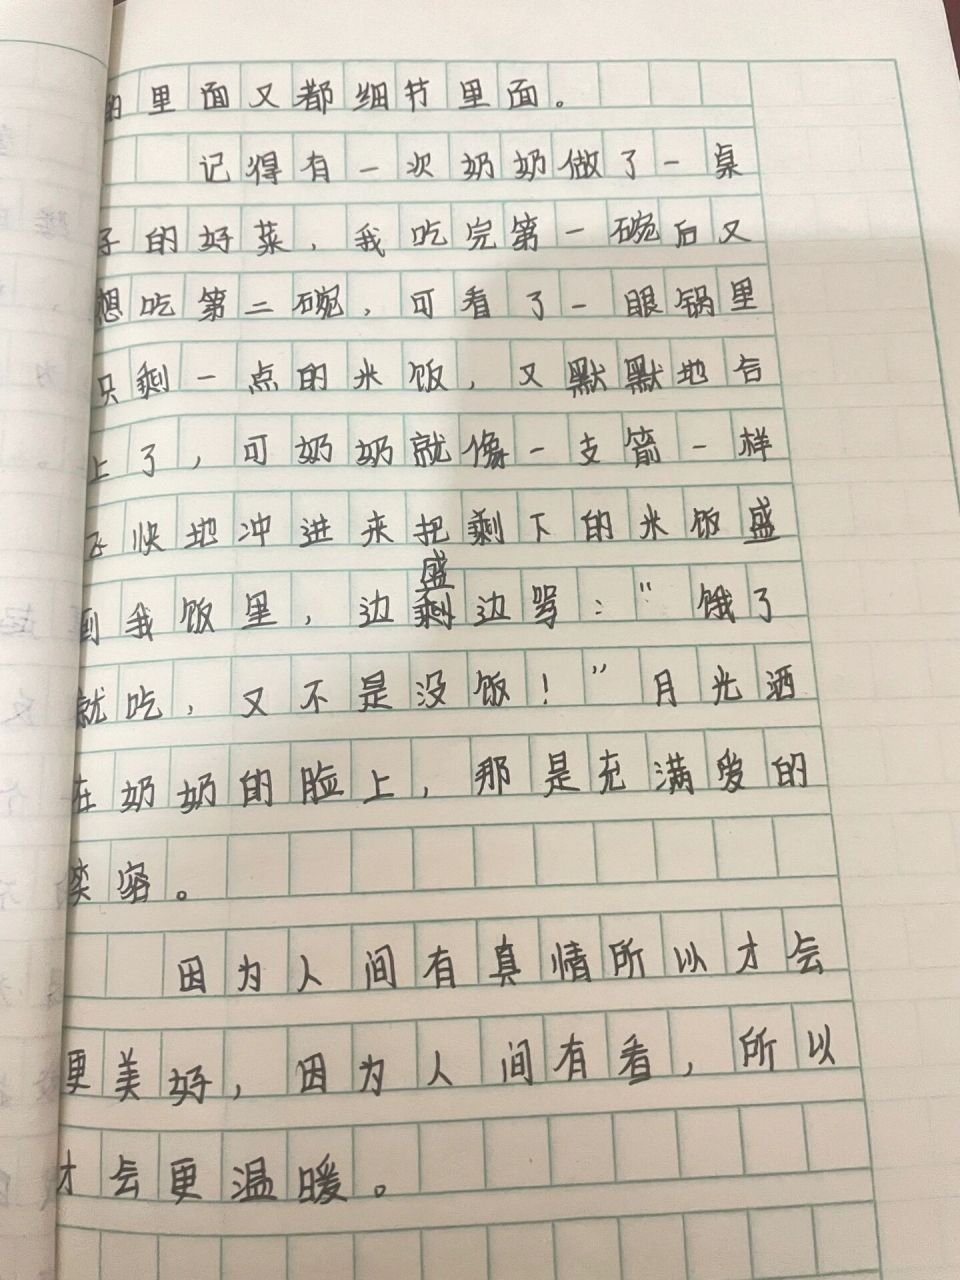 的里面又都细节里面。
记得有一次奶奶做了一桌
子的好菜，我吃完第一碗后又
想吃第二碗，可看了一眼锅里
只剩一点的米饭，又默默地合
上了，可奶奶就像一支箭一样
飞快地冲进来把剩下的米饭盛
盛
到我饭里，边剩边骂：“饿了
就吃，又不是没饭！”月光洒
在奶奶的脸上，那是充满爱的
笑容。
因为人间有真情所以才会
更美好，因为人间有看，所以
才会更温暖。